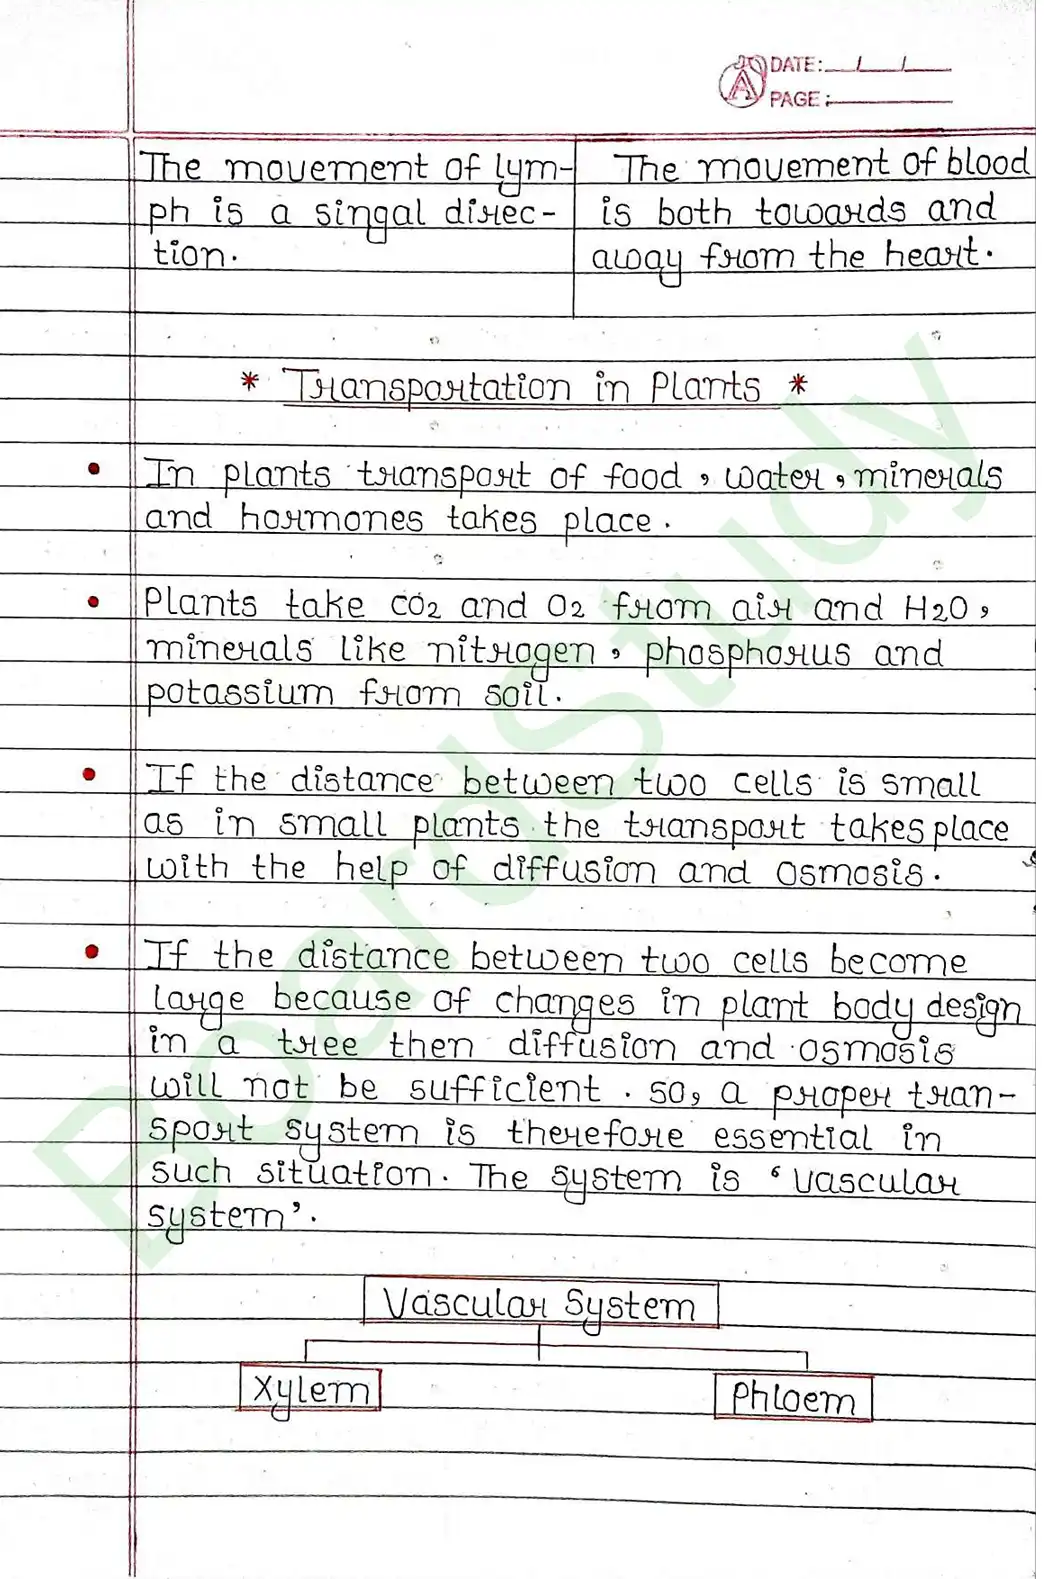 DATE: / /
PAGE:
The movement of lym-
ph is a singal direc-
tion.
The movement of blood
is both towards and
away from the heart.
* Transportation in Plants *
• In plants transport of food, water, minerals
and hormones takes place.
• Plants take CO2 and O2 from air and H2O,
minerals like nitrogen, phosphorus and
potassium from soil.
• If the distance between two cells is small
as in small plants the transport takes place
with the help of diffusion and osmosis.
• If the distance between two cells become
large because of changes in plant body design
in a tree then diffusion and osmosis
will not be sufficient. so, a proper tran-
sport system is therefore essential in
such situation. The system is ‘vascular
system’.
Vascular System
Xylem
Phloem
BoardStudy